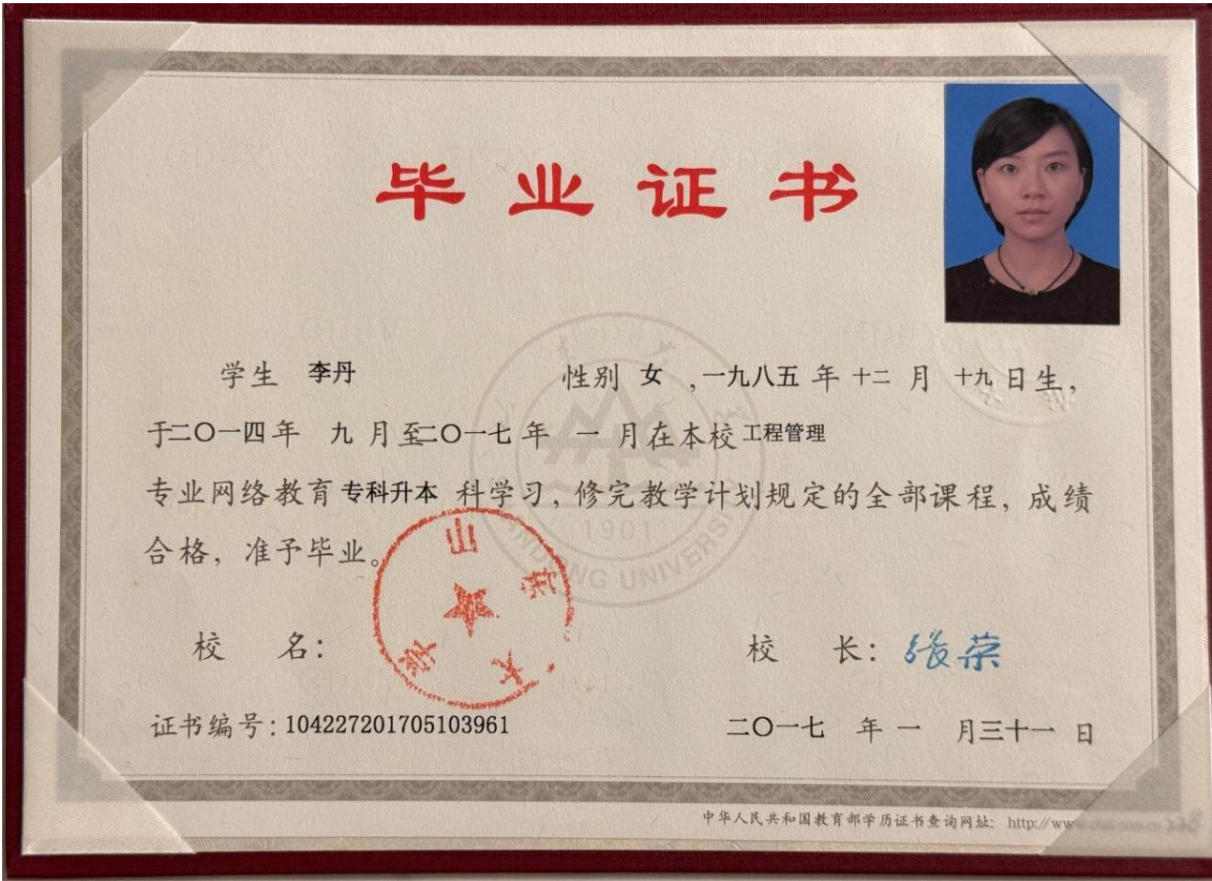 毕业证书
学生 李丹 性别 女 ,一九八五 年 十二 月 十九 日生,
于二〇一四年 九 月至二〇一七年 一 月在本校 工程管理
专业网络教育 专科升本 科学习, 修完教学计划规定的全部课程, 成绩
合格, 准予毕业。
1901
山东大学
校 名: 校 长: 张荣
证书编号: 104227201705103961 二〇一七 年 一 月三十一 日
中华人民共和国教育部学历证书查询网址: http://www